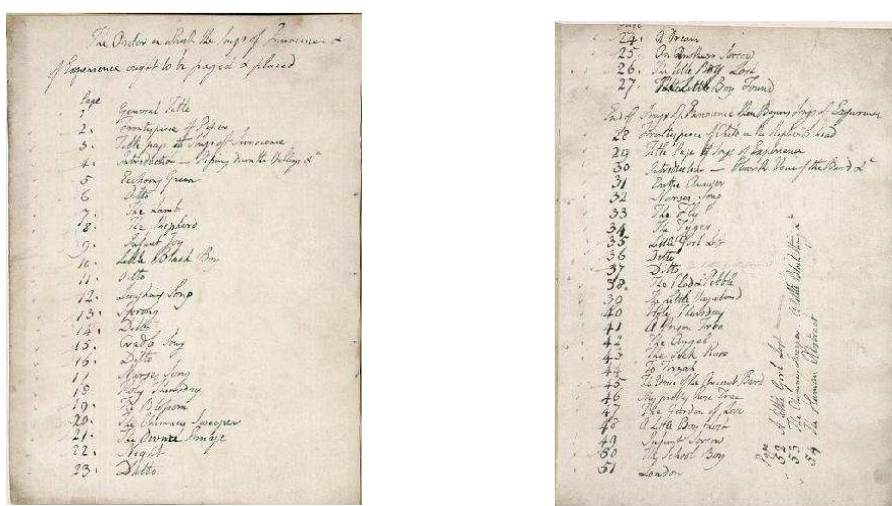 The Order in which the Songs of Innocence &
of Experience ought to be paged & placed
Page
1 General Title
2. Frontispiece of Piper
3. Title page to Songs of Innocence
4. Introduction — Piping down the Valleys &c
5 Ecchoing Green
6 Ditto
7. The Lamb
8. The Shepherd
9. Infant Joy
10. Little Black Boy
11. Ditto
12. Laughing Song
13. Spring
14. Ditto
15. Cradle Song
16. Ditto
17 Nurses Song
18 Holy Thursday
19. The Blossom
20. The Chimney Sweeper
21. The Divine Image
22. Night
23. Ditto
Page
24. A Dream
25. On Anothers Sorrow
26. The little Boy Lost
27. The Little Boy Found
End of Songs of Innocence then Begins Songs of Experience
28 Frontispiece of Child on the Shepherds head
29 Title Page of Songs of Experience
30 Introduction — Hear the Voice of the Bard &c
31 Earths Answer
32 Nurses Song
33 The Fly
34 The Tyger
35 Little Girl Lost
36 Ditto
37 Ditto
38. The Clod & Pebble
39 The little Vagabond
40 Holy Thursday
41 A Poison Tree
42 The Angel
43 The Sick Rose
44 To Tirzah
45 The Voice of the Ancient Bard
46 My pretty Rose Tree
47 The Garden of Love
48 A Little Boy Lost
49 Infant Sorrow
50 The School Boy
51 London
Page
52 A little Girl Lost
53 The Chimney Sweeper A little black thing &c
54 The Human Abstract